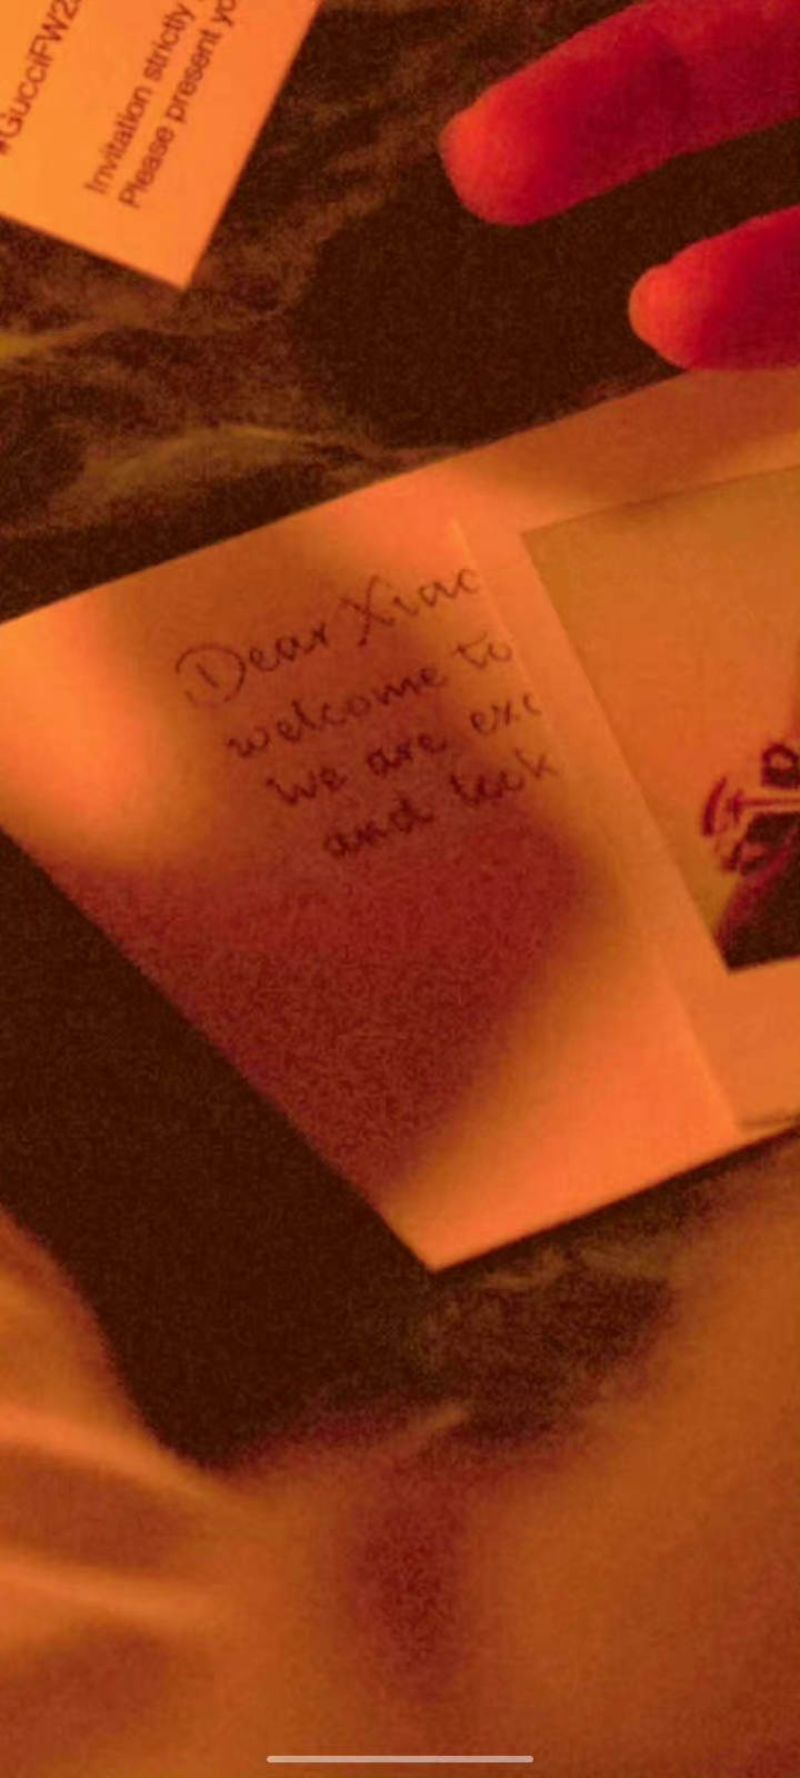 #GucciFW2
Invitation strictly
Please present yo
Dear Xiao
welcome to
we are exc
and look